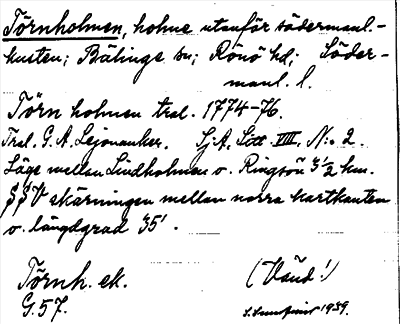 Törnholmen, holme utanför södermanl.-
kusten; Bälinge sn; Rönö hd; Söder-
manl. l.
Törn holmen tral. 1774-76.
Tral. G. A. Lejonanker. Sj. A. Litt. VIII, N:o 2.
Läge mellan Lindholmen o. Ringsön 3 1/2 km.
SSV skärningen mellan norra kartkanten
o. längdgrad 35'.
Törnh. ek. (Vänd!)
G. 57. 1939.